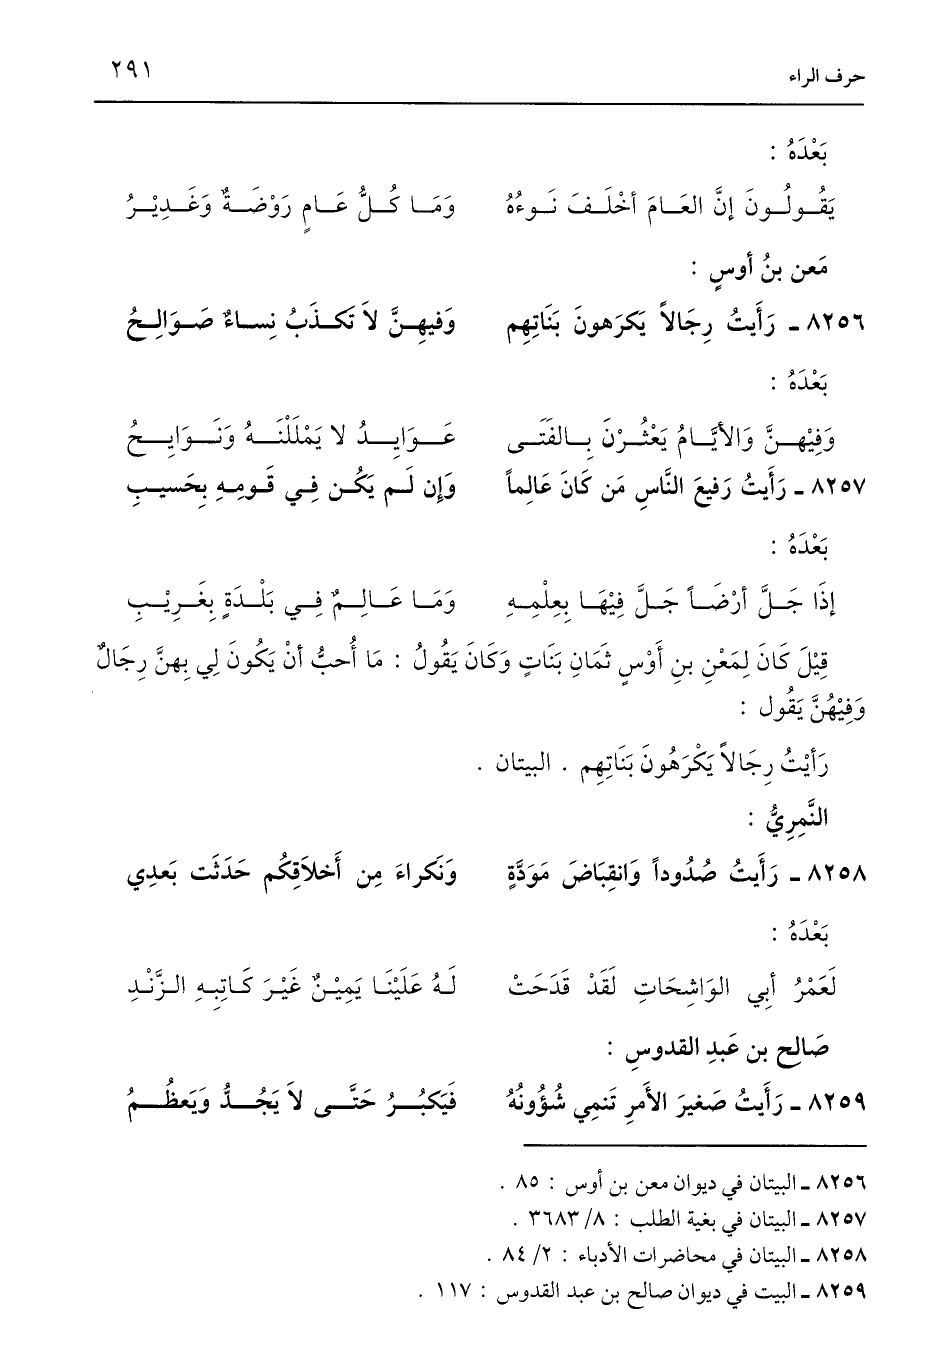 حرف الراء ٢٩١
بَعْدَهُ :
يَقُولُونَ إنَّ العَامَ أخْلَفَ نَوءُهُ وَمَا كُلُّ عَامٍ رَوْضَةٌ وَغَدِيْرُ
مَعن بنُ أوسٍ :
٨٢٥٦ ـ رَأَيتُ رِجَالاً يَكرَهونَ بَنَاتِهِم وَفيهِنَّ لاَ تَكذَبُ نِساءٌ صَوَالِحُ
بَعْدَهُ :
وَفِيْهِنَّ وَالأيَّامُ يَعْثُرْنَ بِالفَتَى عَوَايِدُ لا يَمْلَلْنَهُ وَنَوَايِحُ
٨٢٥٧ ـ رَأَيتُ رَفيعَ النَّاسِ مَن كَانَ عَالِماً وَإن لَم يَكُن فِي قَومِهِ بِحَسيبِ
بَعْدَهُ :
إذَا حَلَّ أرْضَاً حَلَّ فِيْهَا بِعِلْمِهِ وَمَا عَالِمٌ فِي بَلْدَةٍ بِغَرِيْبِ
قِيْلَ كَانَ لِمَعْنِ بنِ أَوْسٍ ثَمَانِ بَنَاتٍ وَكَانَ يَقُولُ : مَا أُحبُّ أنْ يَكُونَ لِي بِهنَّ رِجَالٌ
وَفِيْهُنَّ يَقُول :
رَأَيْتُ رِجَالاً يَكْرَهُونَ بَنَاتِهِم . البيتان .
النَّمِرِيُّ :
٨٢٥٨ ـ رَأَيتُ صُدُوداً وَانقِبَاضَ مَوَدَّةٍ وَنَكراءَ مِن أَخلاَقِكُم حَدَثَت بَعدِي
بَعْدَهُ :
لَعَمْرُ أبِي الوَاشِحَاتِ لَقَدْ قَدَحَتْ لَهُ عَلَيْنَا يَمِيْنٌ غَيْرَ كَاتِبِهِ الزَّنْدِ
صَالح بن عَبدِ القدوسِ :
٨٢٥٩ ـ رَأَيتُ صَغيرَ الأَمرِ تَنمِي شُؤُونُهُ فَيَكبُرُ حَتَّى لاَ يَجُدُّ وَيَعظُمُ
٨٢٥٦ ـ البيتان في ديوان معن بن أوس : ٨٥ .
٨٢٥٧ ـ البيتان في بغية الطلب : ٨/ ٣٦٨٣ .
٨٢٥٨ ـ البيتان في محاضرات الأدباء : ٢/ ٨٤ .
٨٢٥٩ ـ البيت في ديوان صالح بن عبد القدوس : ١١٧ .